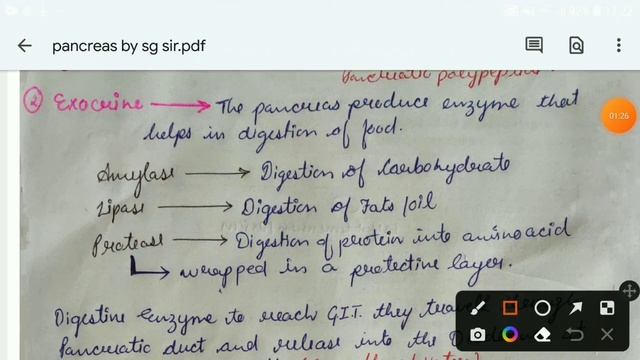 17:22
pancreas by sg sir.pdf
01:26
Pancreatic polypeptide
② Exocrine → The pancreas produce enzyme that
helps in digestion of food.
Amylase → Digestion of Carbohydrate
Lipase → Digestion of Fats/oil
Protease → Digestion of protein into amino acid
↳ wrapped in a protective layer.
Digestive enzyme to reach GIT. they travel through
Pancreatic duct and release into the